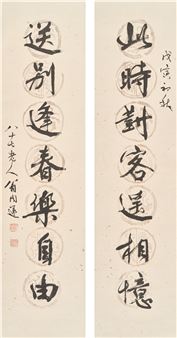 戊寅初秋
此時對客還相憶
送別逢春樂自由
八十七老人